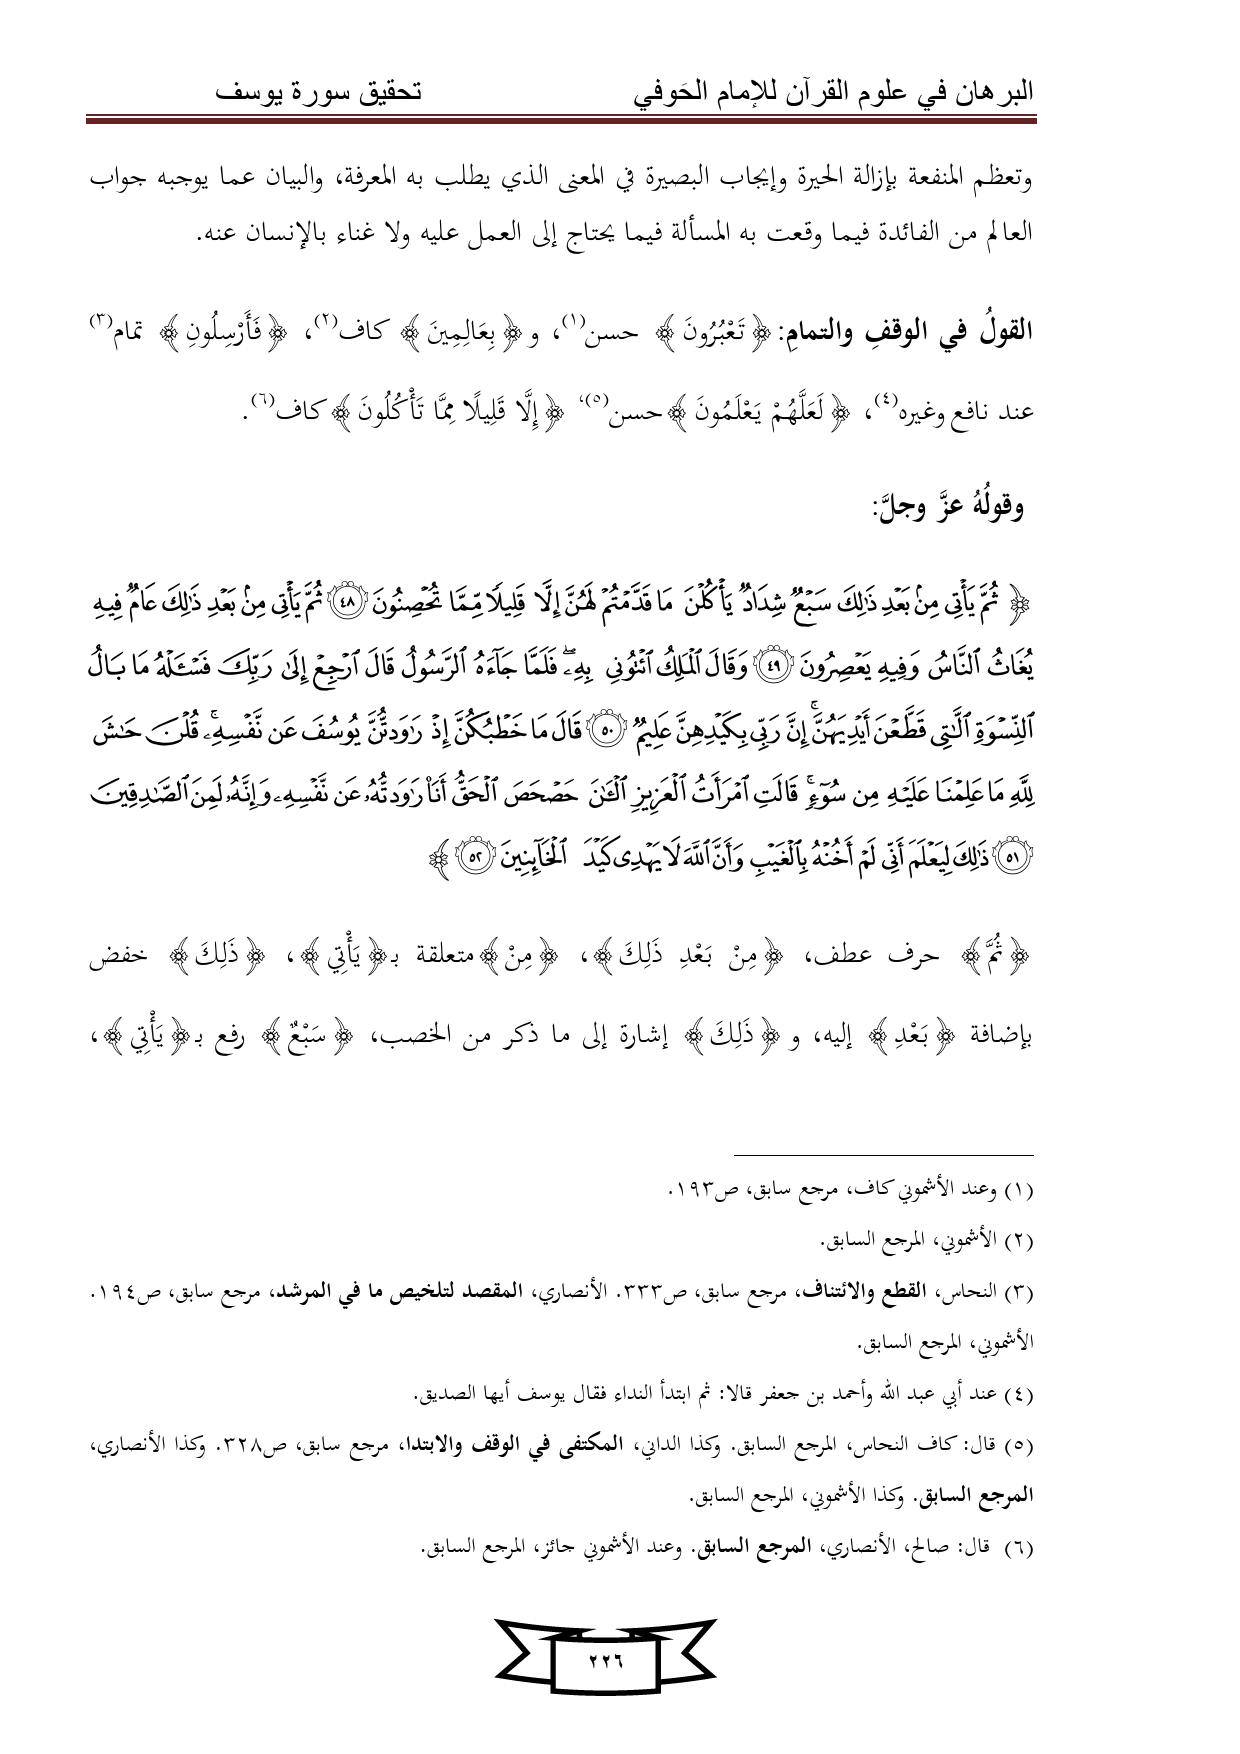 البرهان في علوم القرآن للإمام الحَوفي تحقيق سورة يوسف
وتعظم المنفعة بإزالة الحيرة وإيجاب البصيرة في المعنى الذي يطلب به المعرفة، والبيان عما يوجبه جواب
العالم من الفائدة فيما وقعت به المسألة فيما يحتاج إلى العمل عليه ولا غناء بالإنسان عنه.
القولُ في الوقفِ والتمامِ: ﴿ تَعْبُرُونَ ﴾ حسن(١)، و ﴿ بِعَالِمِينَ ﴾ كاف(٢)، ﴿ فَأَرْسِلُونِ ﴾ تمام(٣)
عند نافع وغيره(٤)، ﴿ لَعَلَّهُمْ يَعْلَمُونَ ﴾ حسن(٥)، ﴿ إِلَّا قَلِيلًا مِمَّا تَأْكُلُونَ ﴾ كاف(٦).
وقولُهُ عزَّ وجلَّ:
﴿ ثُمَّ يَأْتِي مِنۢ بَعْدِ ذَٰلِكَ سَبْعٌ شِدَادٌ يَأْكُلْنَ مَا قَدَّمْتُمْ لَهُنَّ إِلَّا قَلِيلًا مِّمَّا تُحْصِنُونَ ٤٨ ثُمَّ يَأْتِي مِنۢ بَعْدِ ذَٰلِكَ عَامٌ فِيهِ
يُغَاثُ ٱلنَّاسُ وَفِيهِ يَعْصِرُونَ ٤٩ وَقَالَ ٱلْمَلِكُ ٱئْتُونِي بِهِۦ ۖ فَلَمَّا جَآءَهُ ٱلرَّسُولُ قَالَ ٱرْجِعْ إِلَىٰ رَبِّكَ فَسْـَٔلْهُ مَا بَالُ
ٱلنِّسْوَةِ ٱلَّٰتِي قَطَّعْنَ أَيْدِيَهُنَّ ۚ إِنَّ رَبِّي بِكَيْدِهِنَّ عَلِيمٌ ٥٠ قَالَ مَا خَطْبُكُنَّ إِذْ رَٰوَدتُّنَّ يُوسُفَ عَن نَّفْسِهِۦ ۚ قُلْنَ حَٰشَ
لِلَّهِ مَا عَلِمْنَا عَلَيْهِ مِن سُوٓءٍ ۚ قَالَتِ ٱمْرَأَتُ ٱلْعَزِيزِ ٱلْـَٰٔنَ حَصْحَصَ ٱلْحَقُّ أَنَا۠ رَٰوَدتُّهُۥ عَن نَّفْسِهِۦ وَإِنَّهُۥ لَمِنَ ٱلصَّٰدِقِينَ
٥١ ذَٰلِكَ لِيَعْلَمَ أَنِّي لَمْ أَخُنْهُ بِٱلْغَيْبِ وَأَنَّ ٱللَّهَ لَا يَهْدِي كَيْدَ ٱلْخَآئِنِينَ ٥٢ ﴾
﴿ ثُمَّ ﴾ حرف عطف، ﴿ مِنْ بَعْدِ ذَلِكَ ﴾، ﴿ مِنْ ﴾ متعلقة بـ﴿ يَأْتِي ﴾، ﴿ ذَلِكَ ﴾ خفض
بإضافة ﴿ بَعْدِ ﴾ إليه، و ﴿ ذَلِكَ ﴾ إشارة إلى ما ذكر من الخصب، ﴿ سَبْعٌ ﴾ رفع بـ﴿ يَأْتِي ﴾،
(١) وعند الأشموني كاف، مرجع سابق، ص١٩٣.
(٢) الأشموني، المرجع السابق.
(٣) النحاس، القطع والائتناف، مرجع سابق، ص٣٣٣. الأنصاري، المقصد لتلخيص ما في المرشد، مرجع سابق، ص١٩٤.
الأشموني، المرجع السابق.
(٤) عند أبي عبد الله وأحمد بن جعفر قالا: ثم ابتدأ النداء فقال يوسف أيها الصديق.
(٥) قال: كاف النحاس، المرجع السابق. وكذا الداني، المكتفى في الوقف والابتدا، مرجع سابق، ص٣٢٨. وكذا الأنصاري،
المرجع السابق. وكذا الأشموني، المرجع السابق.
(٦) قال: صالح، الأنصاري، المرجع السابق. وعند الأشموني جائز، المرجع السابق.
٢٢٦